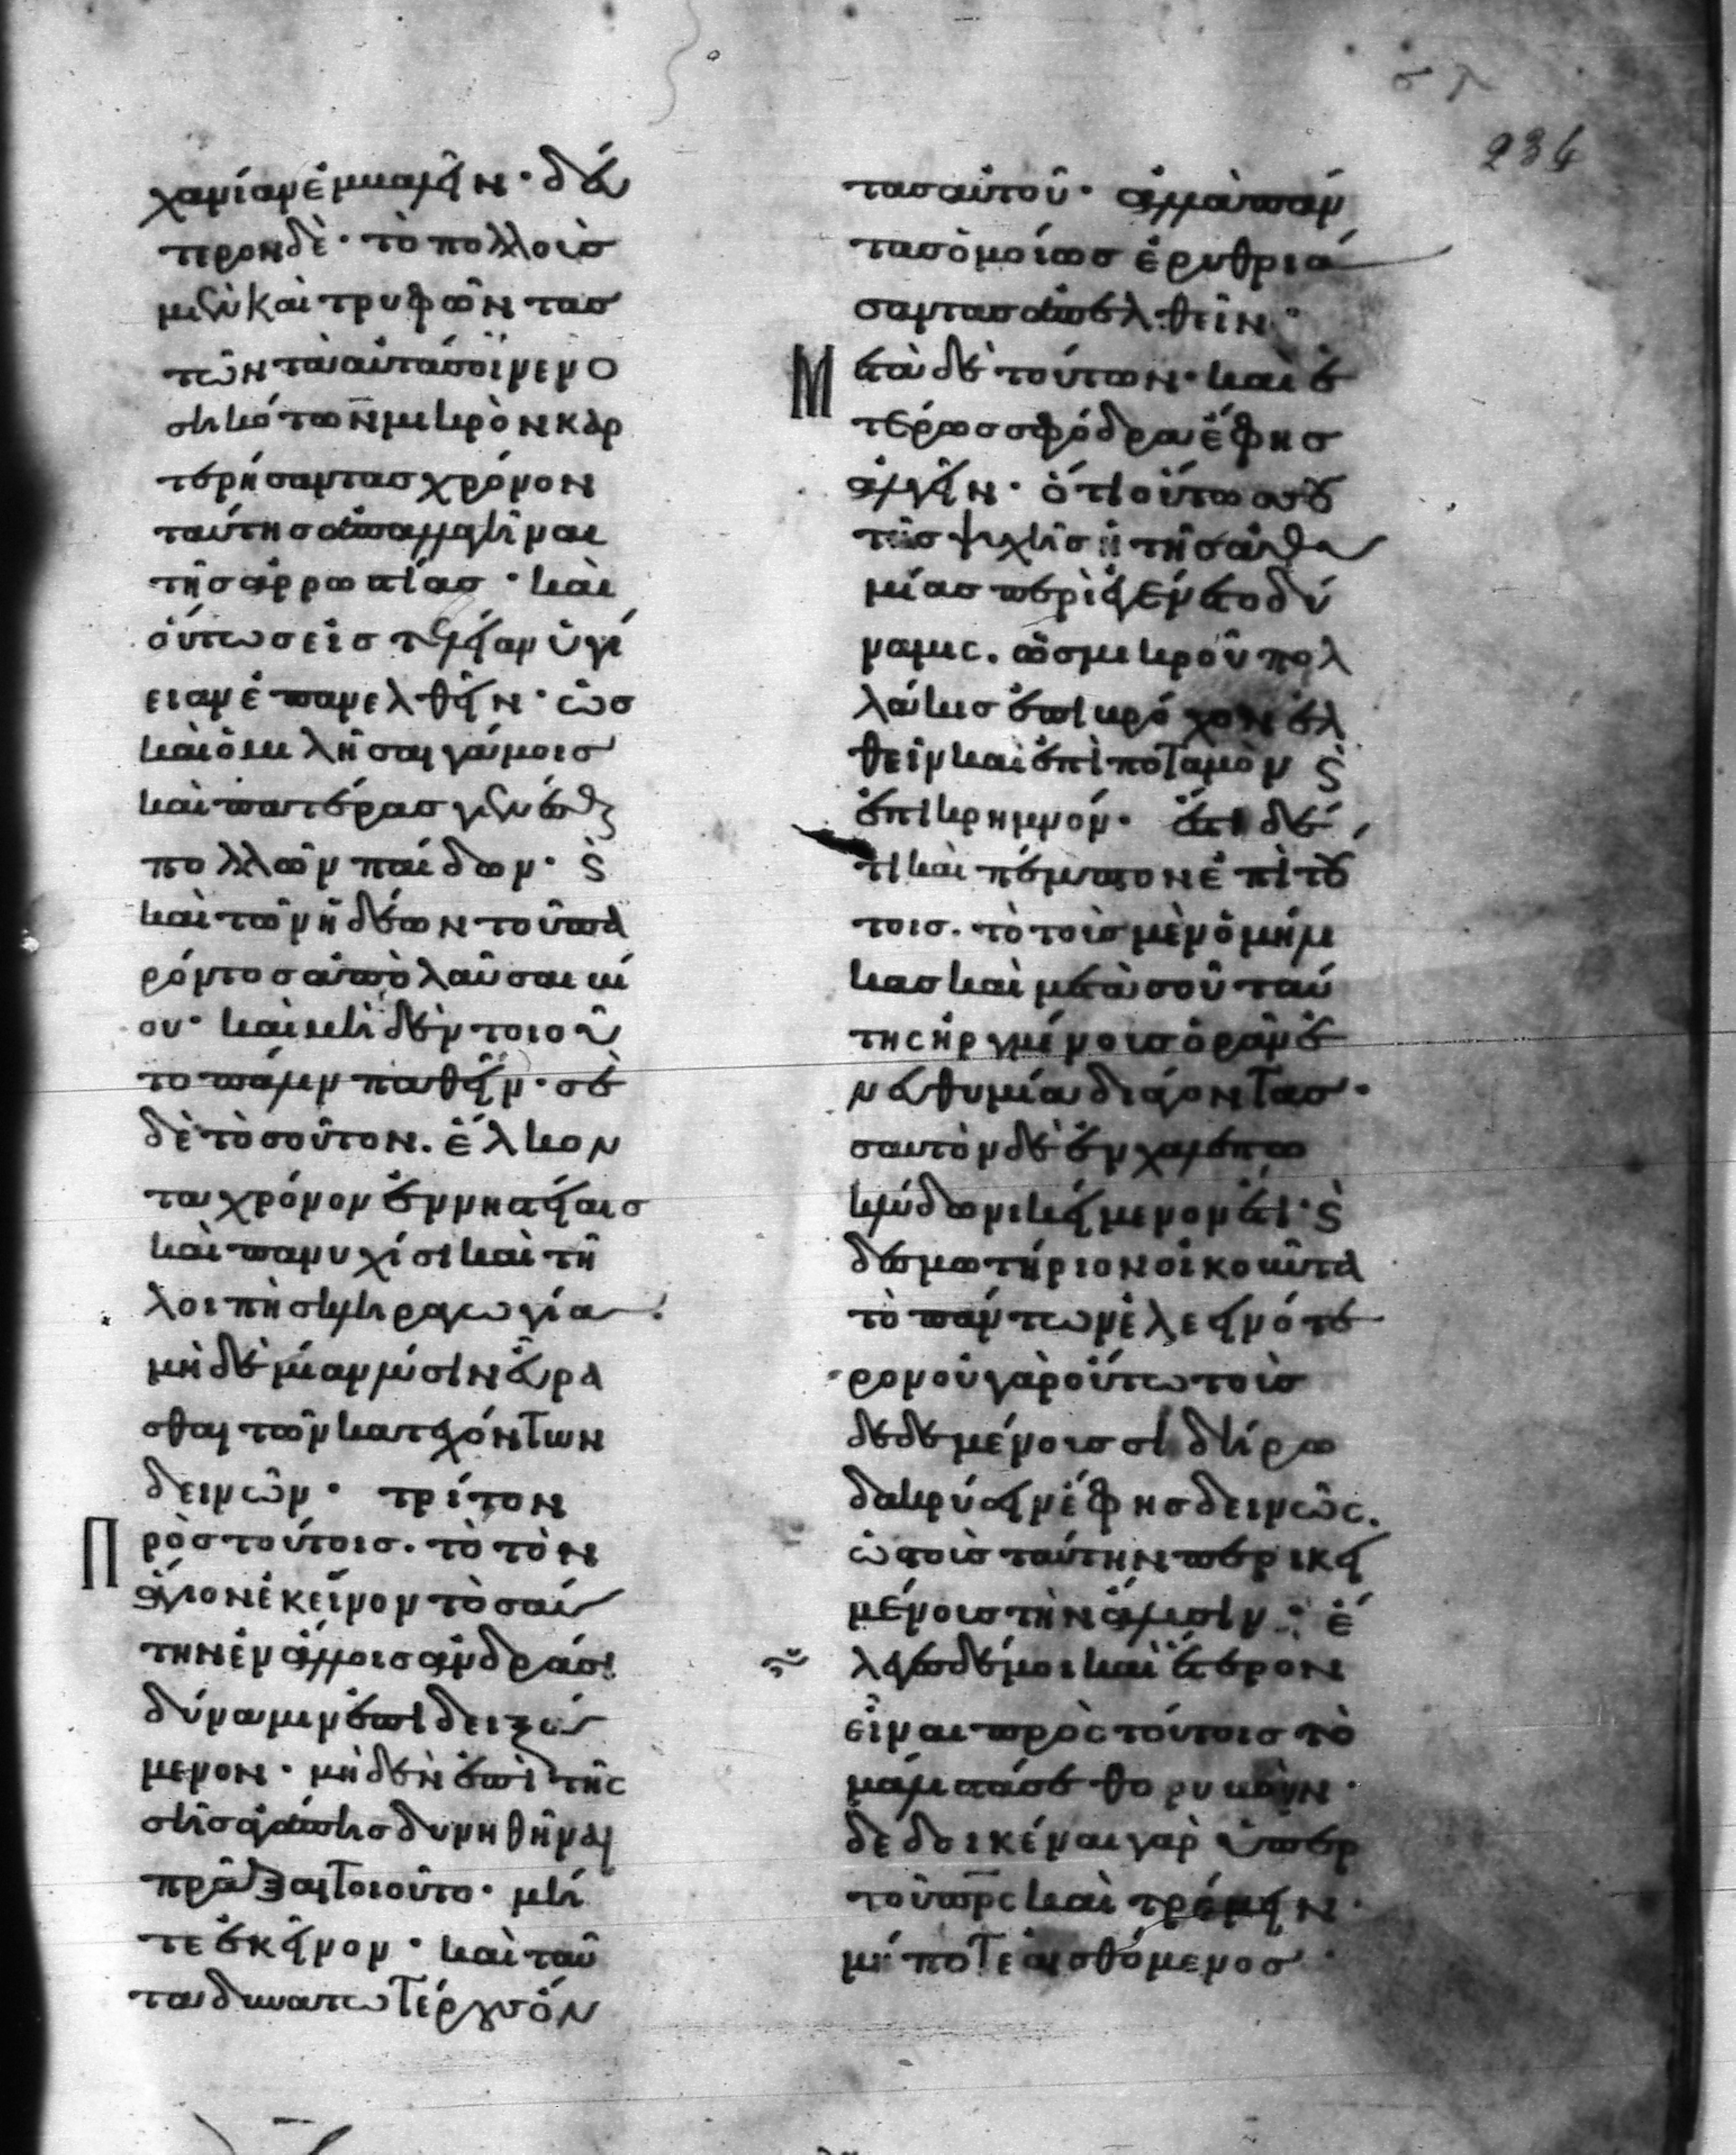 χανίαν ἐμβαλεῖν· δεύ
τερον δὲ· τὸ πολλοὺσ
μὲν καὶ τρυφῶντασ
τῶν τὰ αὐτά σοι νενο
σηκότων μικρὸν καρ
τερήσαντασ χρόνον
ταύτησ ἀπαλλαγῆναι
τῆσ ἀρρωστίασ· καὶ
οὕτωσ εἰσ τελείαν ὑγί
ειαν ἐπανελθεῖν· ὡσ
καὶ ὁμιλῆσαι γάμοισ
καὶ πατέρασ γενέσθαι
πολλῶν παίδων· καὶ
καὶ τῶν ἡδέων τοῦ πα
ρόντοσ ἀπολαῦσαι βί
ου· καὶ μηδὲν τοιοῦ
το πάλιν παθεῖν· σὲ
δὲ τοσοῦτον. ἕλκον
τα χρόνον ἐν νηστείαισ
καὶ παννυχίσι καὶ τῆ
λοιπῆ σκληραγωγία.
μηδεμίαν λύσιν εὕρα
σθαι τῶν κατεχόντων
δεινῶν· τρίτον
Πρὸσ τούτοισ. τὸ τὸν
ἅγιον ἐκεῖνον τοσαύ
την ἐν ἄλλοισ ἀνδράσι
δύναμιν ἐπιδειξά
μενον· μηδὲν ἐπὶ τῆς
σῆσ ἀγάπησ δυνηθῆναι
πρᾶξαι τοιοῦτο· μή
τε ἐκεῖνον· καὶ ταῦ
τα δυνατωτέρους ὄν
τασ αὐτοῦ· ἀλλὰ πάν
τασ ὁμοίωσ ἐρυθριά
σαντασ ἀπελθεῖν·
Μετὰ δὲ τούτων· καὶ ἑ
τέρωσ σφόδρα ἔφησ
ἀλγεῖν· ὅτι οὕτωσ σου
τῆσ ψυχῆσ ἡ τῆσ ἀθυ
μίασ περιεγένετο δύ
ναμις. ὡσ μικροῦ πολ
λάκισ ἐπὶ βρόχον ἐλ
θεῖν καὶ ἐπὶ ποταμὸν καὶ
ἐπὶ κρημνόν· ἔτι δέ
τι καὶ πέμπτον ἐπὶ τού
τοισ. τὸ τοὺσ μὲν ὁμήλι
κασ καὶ μετὰ σοῦ ταύ
της ἠργμένουσ ὁρᾶν ἐ
ν εὐθυμία διάγοντασ·
σαυτὸν δὲ ἐν χαλεπω
κλύδωνι κείμενον ἔτι· καὶ
δεσμωτήριον οἰκοῦντα
τὸ πάντων ἐλεεινότε
ρον οὐ γὰρ οὕτω τοὺσ
δεδεμένουσ σιδήρω
δακρύειν ἔφησ δεινῶς.
ὡσ τοὺσ ταύτην περικει
μένουσ τὴν ἅλυσιν· ἔ
λεγεσ δέ μοι καὶ ἕτερον
εἶναι πρὸς τούτοισ τὸ
μάλιστά σε θορυβοῦν·
δεδοικέναι γὰρ ὑπὲρ
τοῦ πρς καὶ τρέμειν·
μή ποτε αἰσθόμενοσ